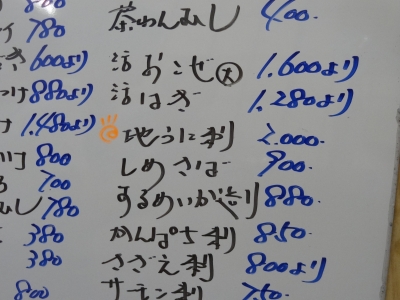 茶わんむし 400.
活おこぜ大 1.600より
活はぎ 1.280より
地うに刺 2.000.
しめさば 900.
するめいか造り 880
かんぱち刺 850.
さざえ刺 800より
サーモン刺 750.
800
780
き 600より
つけ 880より
け 1.480より
800
700
むし 780
380
380
800